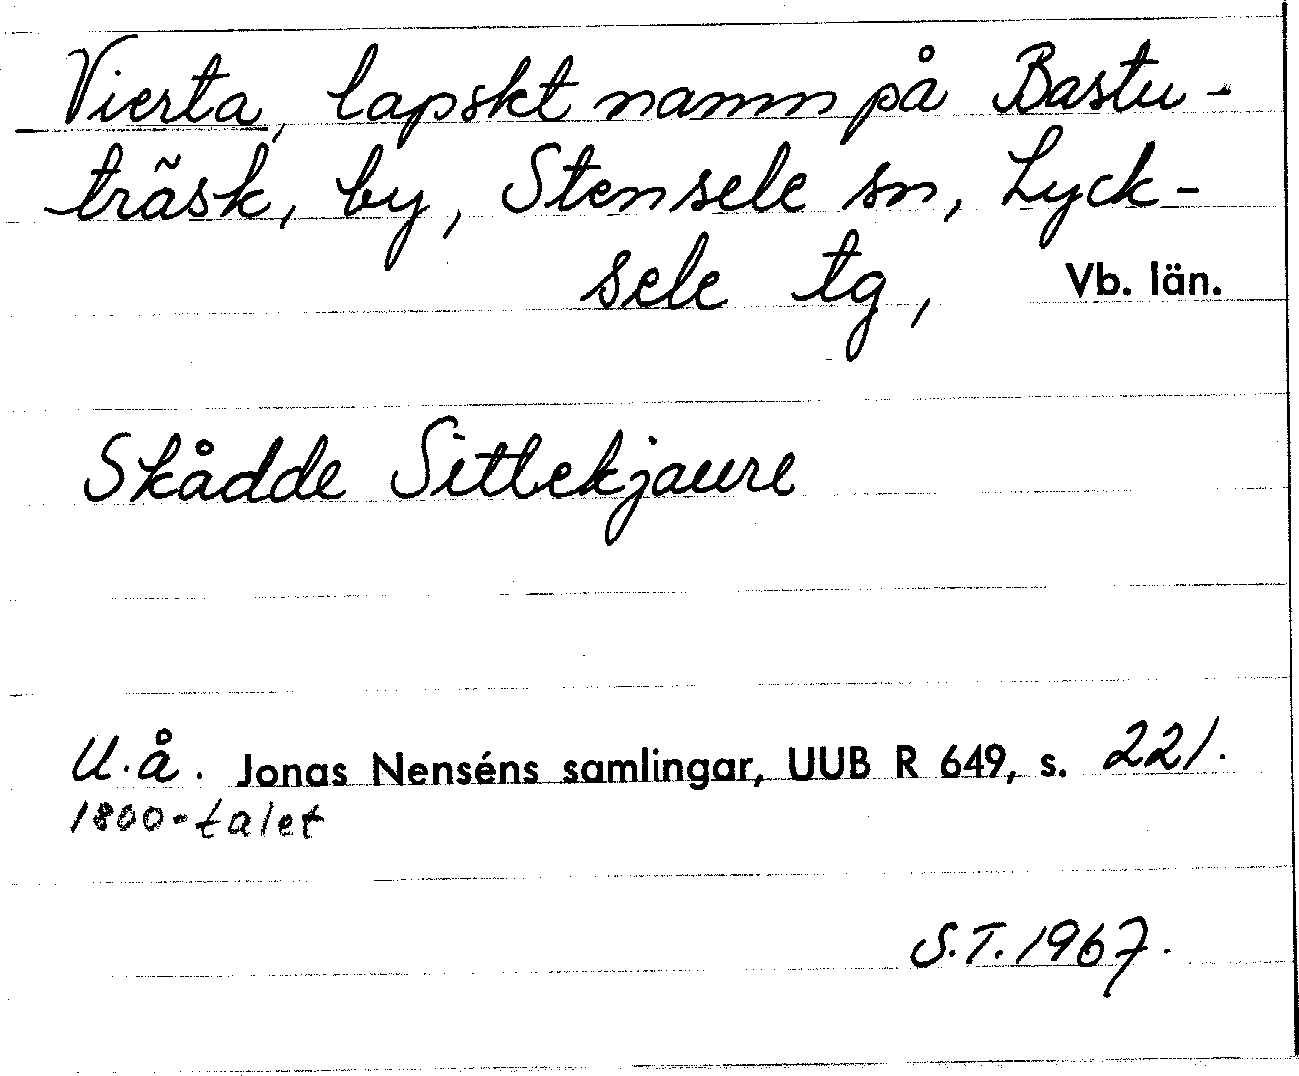 Vierta, lapskt namn på Bastu-
träsk, by, Stensele sn, Lyck-
sele tg, Vb. län.
Skådde Sitlekjaure
U.å. Jonas Nenséns samlingar, UUB R 649, s. 221.
1800-talet
S.T. 1967.